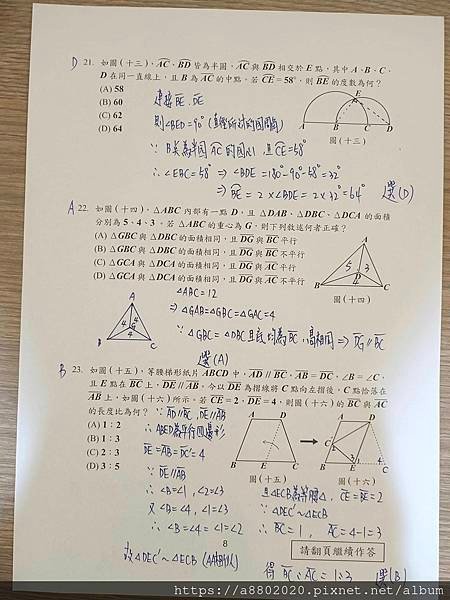 D 21. 如圖(十三)，AC、BD 皆為半圓，AC 與 BD 相交於 E 點，其中 A、B、C、
D 在同一直線上，且 B 為 AC 的中點。若 CE = 58°，則 BE 的度數為何？
(A) 58
(B) 60
(C) 62
(D) 64
連接 BE、DE
則∠BED=90° (直徑所對的圓周角)
∵ B 為半圓 AC 的圓心 且 CE=58°
∴ ∠EBC=58° ⇒ ∠BDE=180°-90°-58°=32°
⇒ BE = 2×∠BDE = 2×32°=64° 選(D)
A B C D E
圖(十三)
A 22. 如圖(十四)，△ABC 內部有一點 D，且 △DAB、△DBC、△DCA 的面積
分別為 5、4、3。若 △ABC 的重心為 G，則下列敘述何者正確？
(A) △GBC 與 △DBC 的面積相同，且 DG 與 BC 平行
(B) △GBC 與 △DBC 的面積相同，且 DG 與 BC 不平行
(C) △GCA 與 △DCA 的面積相同，且 DG 與 AC 平行
(D) △GCA 與 △DCA 的面積相同，且 DG 與 AC 不平行
A 5 3 D 4 B C
圖(十四)
△ABC=12
⇒ △GAB=△GBC=△GAC=4
∵ △GBC = △DBC 且底均為 BC，高相同 ⇒ DG // BC
選(A)
A 4 4 G 4 B C
B 23. 如圖(十五)，等腰梯形紙片 ABCD 中，AD // BC，AB = DC，∠B = ∠C，
且 E 點在 BC 上，DE // AB。今以 DE 為摺線將 C 點向左摺後，C 點恰落在
AB 上，如圖(十六)所示。若 CE = 2，DE = 4，則圖(十六)的 BC 與 AC
的長度比為何？
(A) 1：2
(B) 1：3
(C) 2：3
(D) 3：5
∵ AD // BC，DE // AB
∴ ABED為平行四邊形
DE=AB=DC'=4
∵ DE // AB
∴ ∠B=∠1，∠2=∠3
又 ∠B=∠4，∠1=∠3
∴ ∠B=∠4=∠1=∠2
故△DEC'~△ECB (AA相似)
A D B E C
圖(十五)
A D C B E
圖(十六)
且△ECB為等腰△，CE=BE=2
∵ △DEC'~△ECB
∴ BC=1，AC=4-1=3
得 BC：AC=1：3 選(B)
8
請翻頁繼續作答
https://a8802020.pixnet.net/album